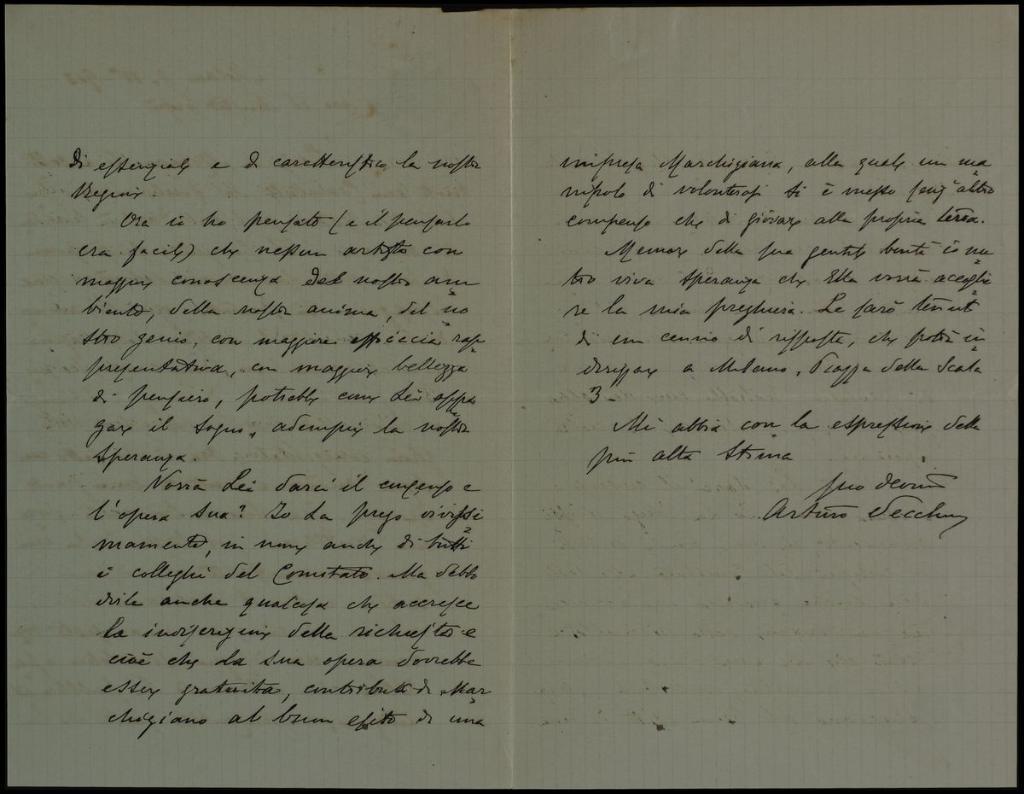 di essenziale e di caratteristico la nostra
Regione.
Ora io ho pensato (e il pensarlo
era facile) che nessun artista con
maggiore conoscenza del nostro am
biente, della nostra anima, del no
stro genio, con maggiore efficacia rap
presentativa, con maggiore bellezza
di pensiero, potrebbe come Lei appa
gare il sogno, adempire la nostra
speranza.
Vorrà Lei darci il consenso e
l'opera sua? Io La prego vivissi
mamente, in nome anche di tutti
i colleghi del Comitato. Ma debbo
dirle anche qualcosa che accresce
la indiscrezione della richiesta e
cioè che la sua opera dovrebbe
essere gratuita, contributo di Mar
chigiano al buon esito di una
impresa Marchigiana, alla quale un ma
nipolo di volonterosi si è messo senz'altro
compenso che di giovare alla propria terra.
Memore della sua gentile bontà io nu
tro viva speranza che Ella vorrà accoglie
re la mia preghiera. Le sarò tenuto
di un cenno di risposta, che potrà in
dirizzare a Milano, Piazza della Scala
3
Mi abbia con la espressione della
più alta stima
suo devmo
Arturo Vecchini